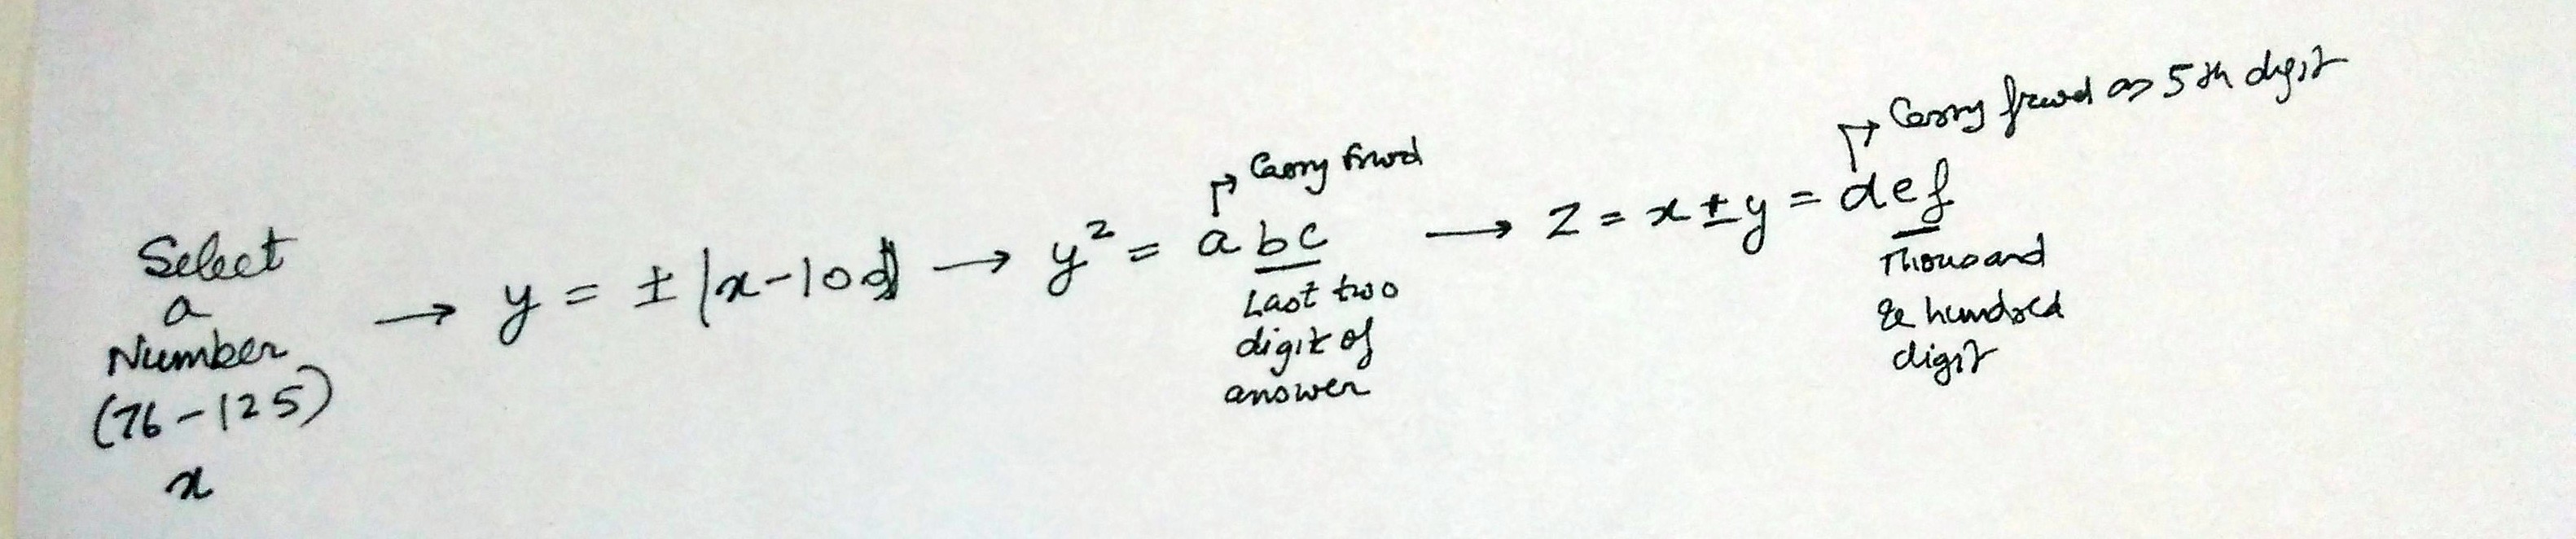 Select
a
Number
(76-125)
x
→ y = ± |x-100| → y² = abc → z = x ± y = def
Carry frwd
Last two
digit of
answer
Carry frwd as 5th digit
Thousand
& hundred
digit